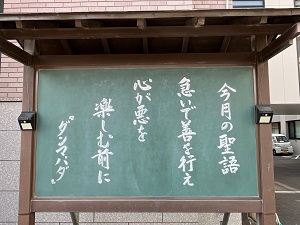 今月の聖語
急いで善を行え
心が悪を
楽しむ前に
“ダンマパダ”